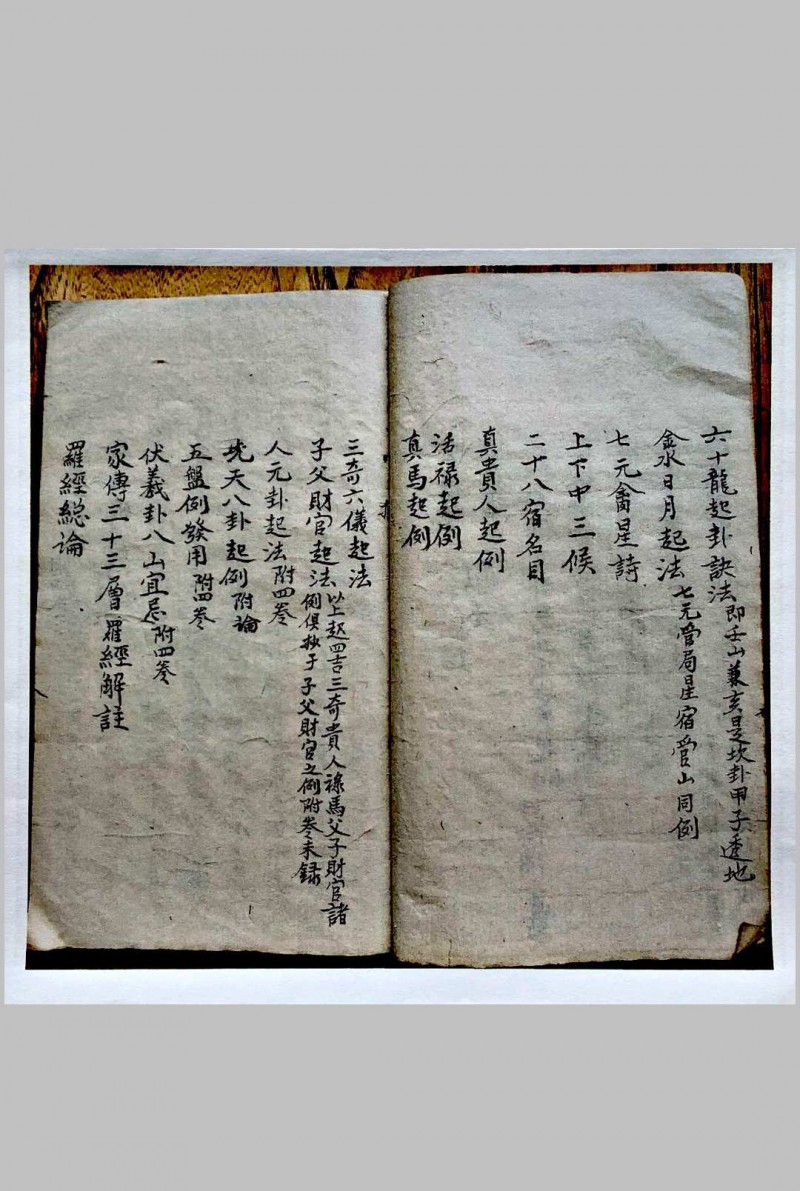 六十龍起卦訣法即壬山兼亥是坎卦甲子透地
金水日月起法七元管局星宿管山同例
七元禽星詩
上下中三候
二十八宿名目
真貴人起例
活禄起例
真馬起例
三奇六儀起法
子父財官起法以上起四吉三奇貴人祿馬父子財官諸
例俱抄于子父財官之例附卷未録
人元卦起法附四卷
先天八卦起例附論
五盤例發用附四卷
伏羲卦八山宜忌附四卷
家傳三十三層羅經解註
羅經総論